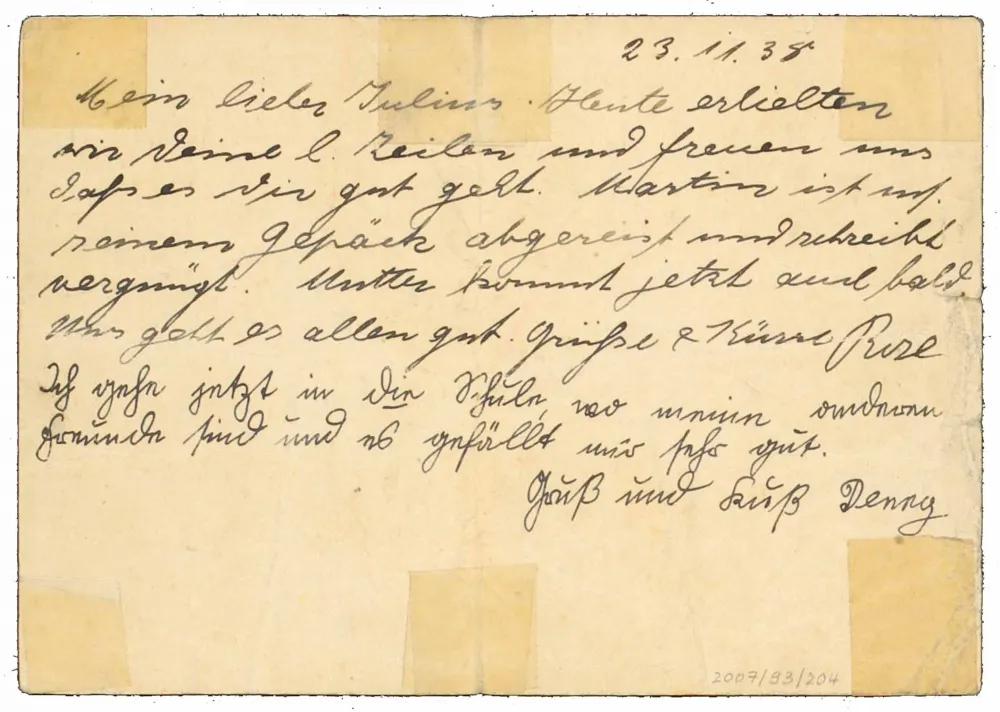 23.11.38
Mein lieber Julius. Heute erhielten
wir Deine l. Zeilen und freuen uns
daß es Dir gut geht. Martin ist m.
seinem Gepäck abgereist und schreibt
vergnügt. Mutter kommt jetzt auch bald.
Uns geht es allen gut. Grüße & Küsse
Ich gehe jetzt in die Schule, wo meine anderen
Freunde sind und es gefällt mir sehr gut.
Gruß und Kuß
2007/93/204